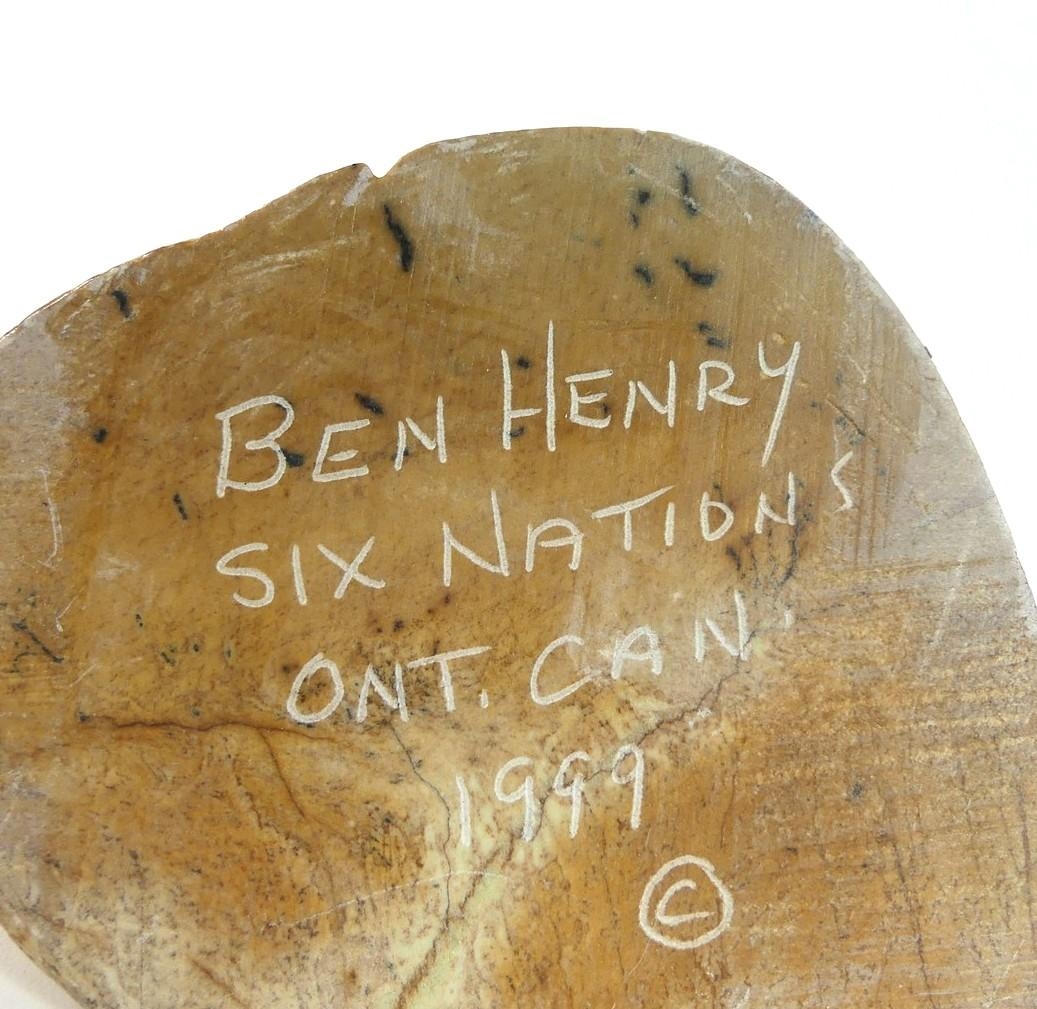 BEN HENRY
SIX NATIONS
ONT. CAN.
1999
©